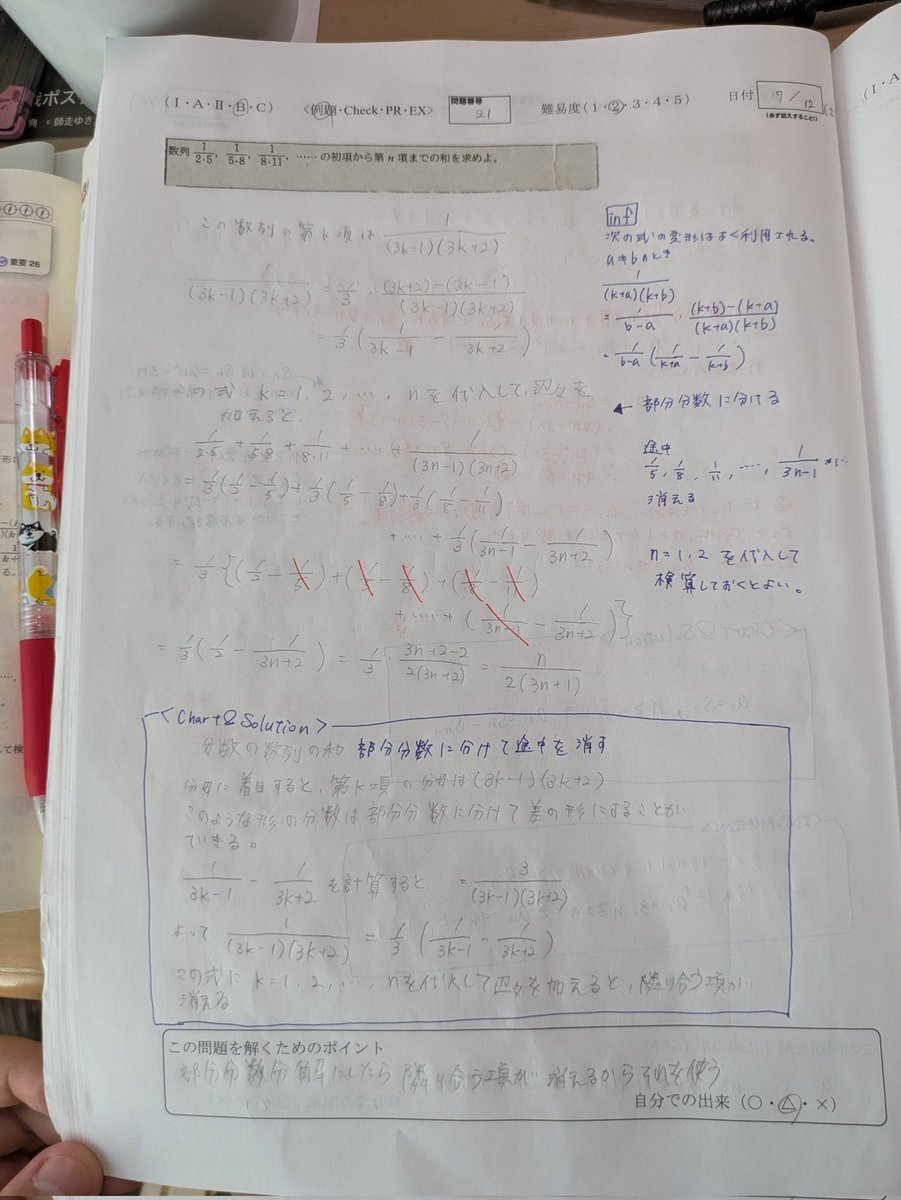 戦ポス
典 ・師走ゆき
重要 26
(I・A・II・B・C) <例題・Check・PR・EX> 問題番号 21 難易度(1・2・3・4・5) 日付 7/12
(必ず記入すること!)
数列 1/(2・5), 1/(5・8), 1/(8・11), ……の初項から第n項までの和を求めよ。
この数列の第k項は 1/((3k-1)(3k+2))
1/((3k-1)(3k+2)) = 1/3 ・ ((3k+2)-(3k-1))/((3k-1)(3k+2))
= 1/3 (1/(3k-1) - 1/(3k+2))
この式 k=1, 2, …, nを代入して、辺々を
加えると、
1/(2・5) + 1/(5・8) + 1/(8・11) + …… + 1/((3n-1)(3n+2))
= 1/3(1/2 - 1/5) + 1/3(1/5 - 1/8) + 1/3(1/8 - 1/11)
+ …… + 1/3(1/(3n-1) - 1/(3n+2))
= 1/3 {(1/2 - 1/5) + (1/5 - 1/8) + (1/8 - 1/11)
+ …… + (1/(3n-1) - 1/(3n+2))}
= 1/3(1/2 - 1/(3n+2)) = 1/3 ・ (3n+2-2)/(2(3n+2)) = n/(2(3n+1))
inf
次の式の変形はよく利用される。
a≠bのとき
1/((k+a)(k+b))
= 1/(b-a) ・ ((k+b)-(k+a))/((k+a)(k+b))
= 1/(b-a) (1/(k+a) - 1/(k+b))
← 部分分数に分ける
途中
1/5, 1/8, 1/11, ……, 1/(3n-1) が
消える
n=1, 2 を代入して
検算しておくとよい。
<Chart&Solution>
分数の数列の和 部分分数に分けて途中を消す
分母に着目すると、第k項の分母は(3k-1)(3k+2)
このような形の分数は部分分数に分けて差の形にすることが
できる。
1/(3k-1) - 1/(3k+2) を計算すると = 3/((3k-1)(3k+2))
よって 1/((3k-1)(3k+2)) = 1/3 (1/(3k-1) - 1/(3k+2))
この式に k=1, 2, …, nを代入して辺々を加えると、隣り合う項が
消える
この問題を解くためのポイント
部分分数分解にしたら隣り合う項が消えるからそれを使う
自分での出来 (○・△・×)